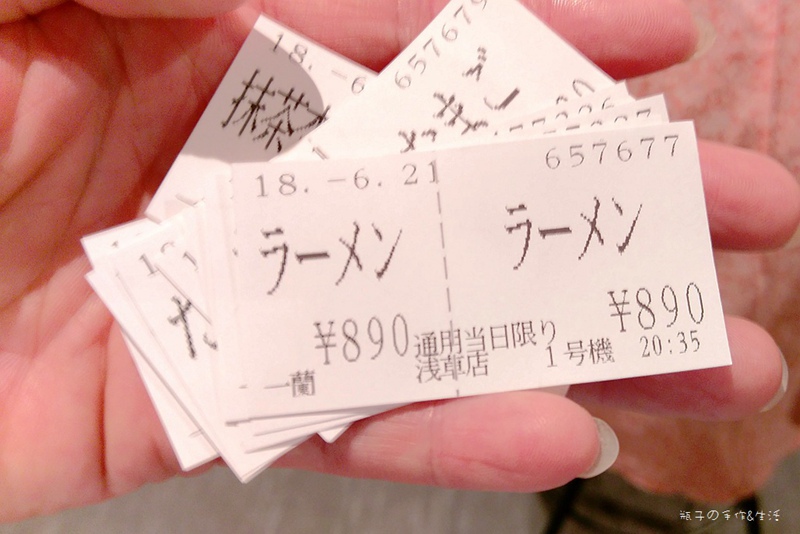 18.-6
抹茶
657679
18.-6.21
657677
ラーメン
ラーメン
¥890
¥890
通用当日限り
浅草店
1号機
20:35
一蘭
瓶子の手作&生活